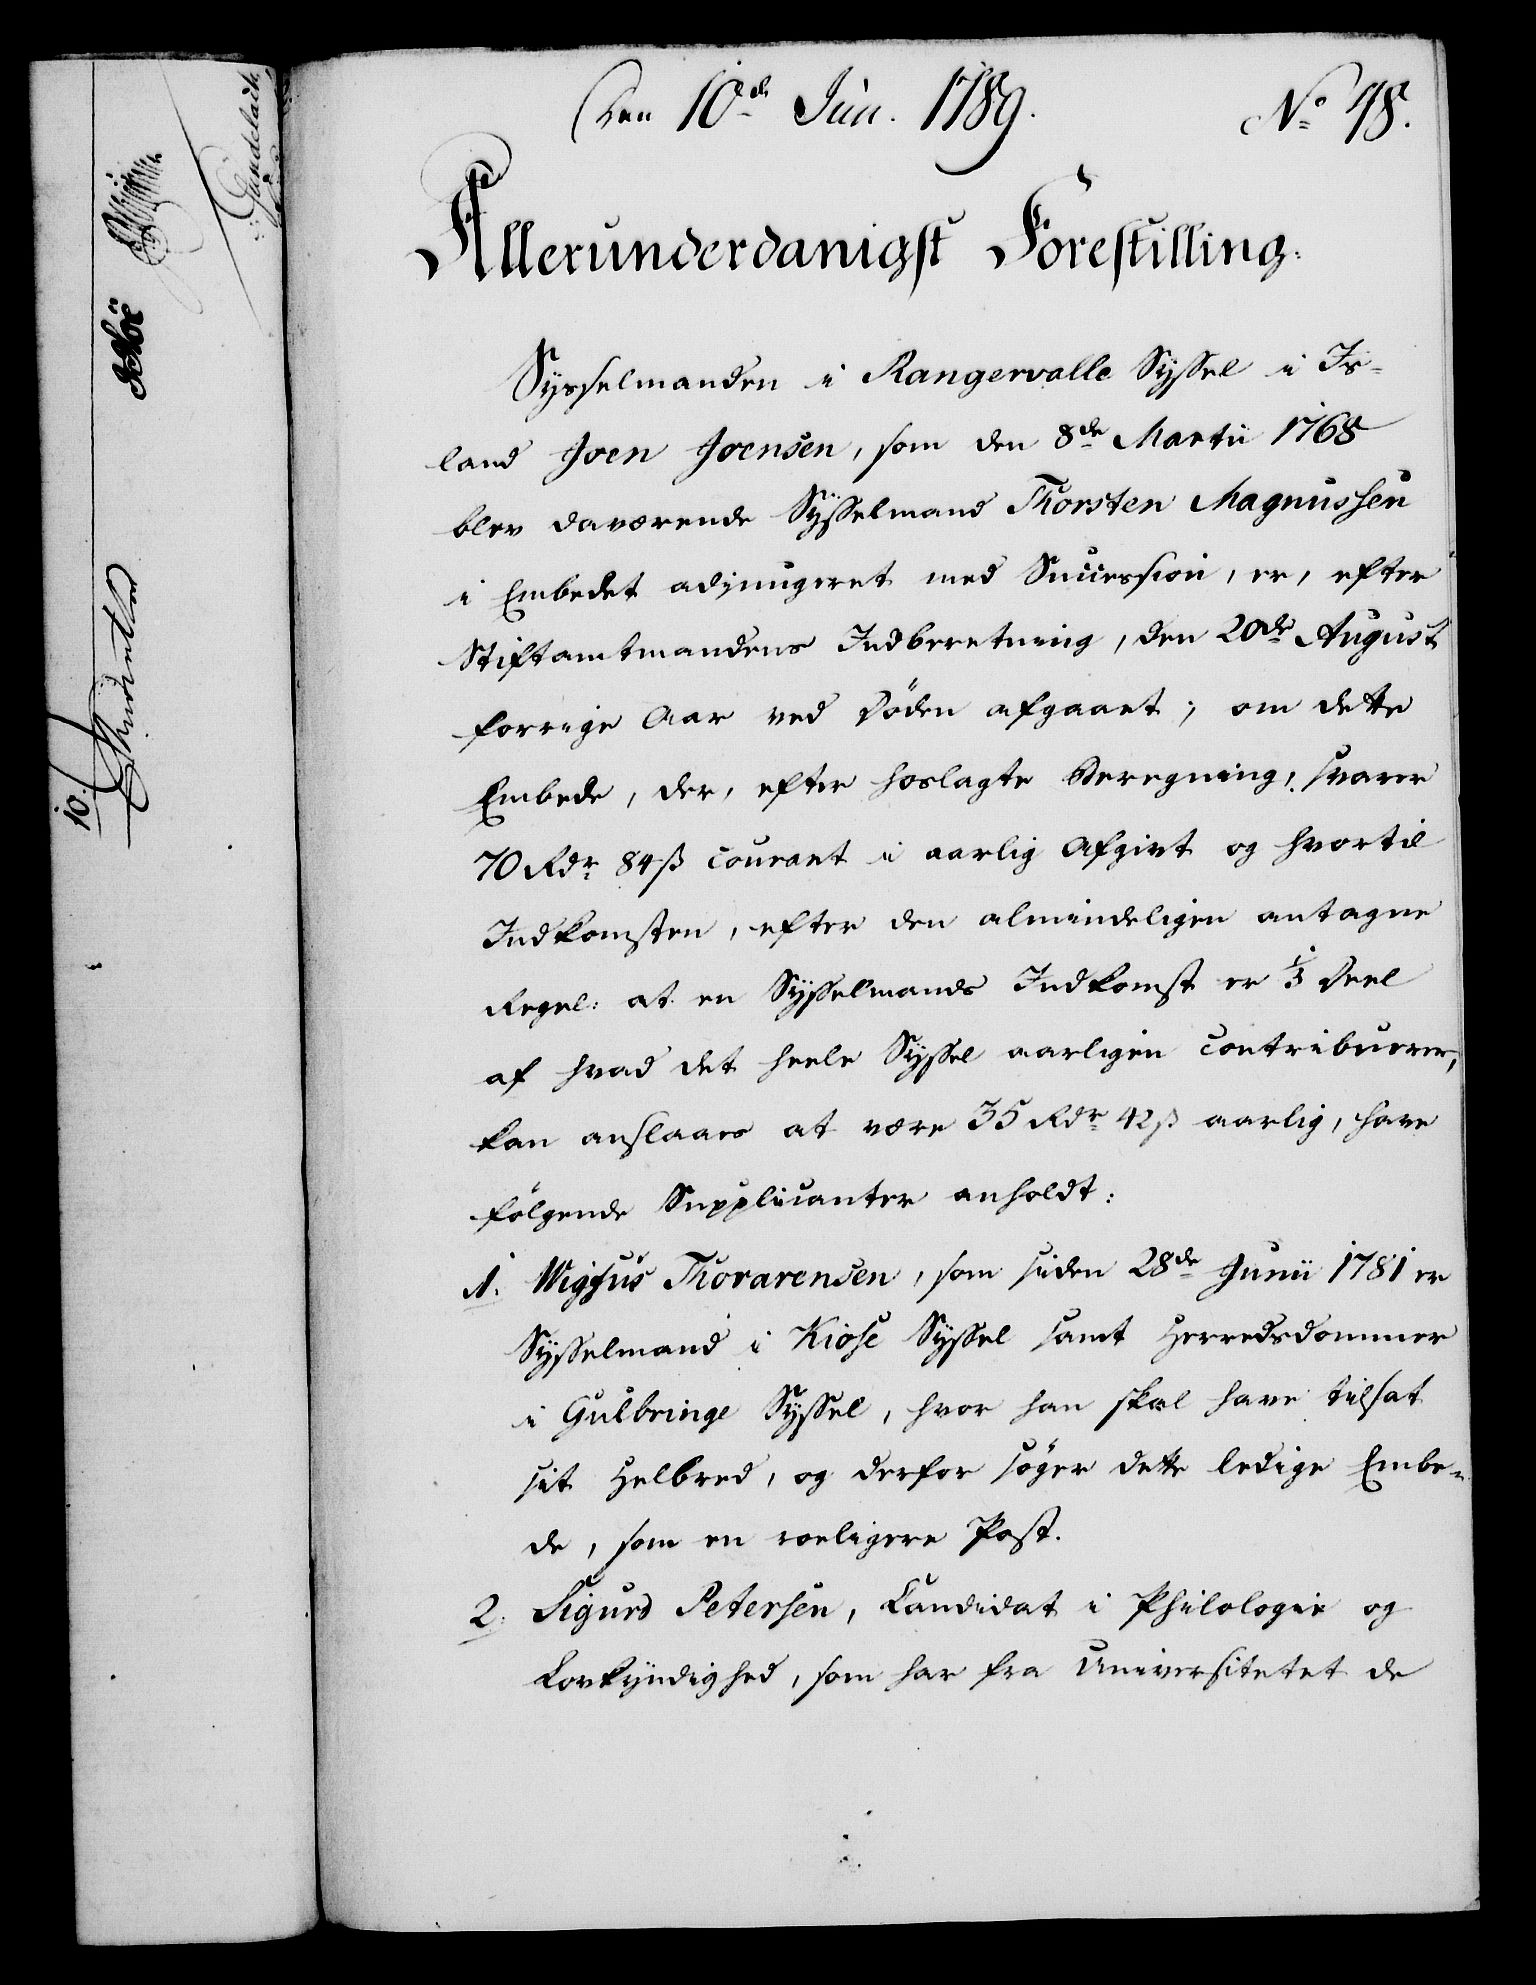 Den 10de Jun. 1789. No 48.
Allerunderdanigst Forestilling.
Sysselmanden i Rangervalle Syssel i Is-
land Joen Joensen, som den 8de Martii 1768
blev daværende Sysselmand Thorsten Magnussen
i Embedet adjungeret med Succession, er, efter
Stiftamtmandens Indberetning, den 20de August
forrige Aar ved Döden afgaaet; om dette
Embede, der, efter hoslagte Beregning, svarer
70 Rdr 84 ß courant i aarlig Afgivt og hvortil
Indkomsten, efter den almindeligen antagne
Regel: at en Sysselmands Indkomst er 1/3 Deel
af hvad det heele Syssel aarligen contribuerer,
kan anslaaes at være 35 Rdr 42 ß aarlig, have
fölgende Supplicanter anholdt:
1. Wigfus Thorarensen, som siden 28de Junii 1781 er
Sysselmand i Kiose Syssel samt Herredsdommer
i Gulbringe Syssel, hvor han skal have tilsat
sit Helbred, og derfor söger dette ledige Embe-
de, som en roeligere Post.
2. Sigurd Petersen, Candidat i Philologie og
Lovkyndighed, som har fra Universitetet de
Gundelach
10.